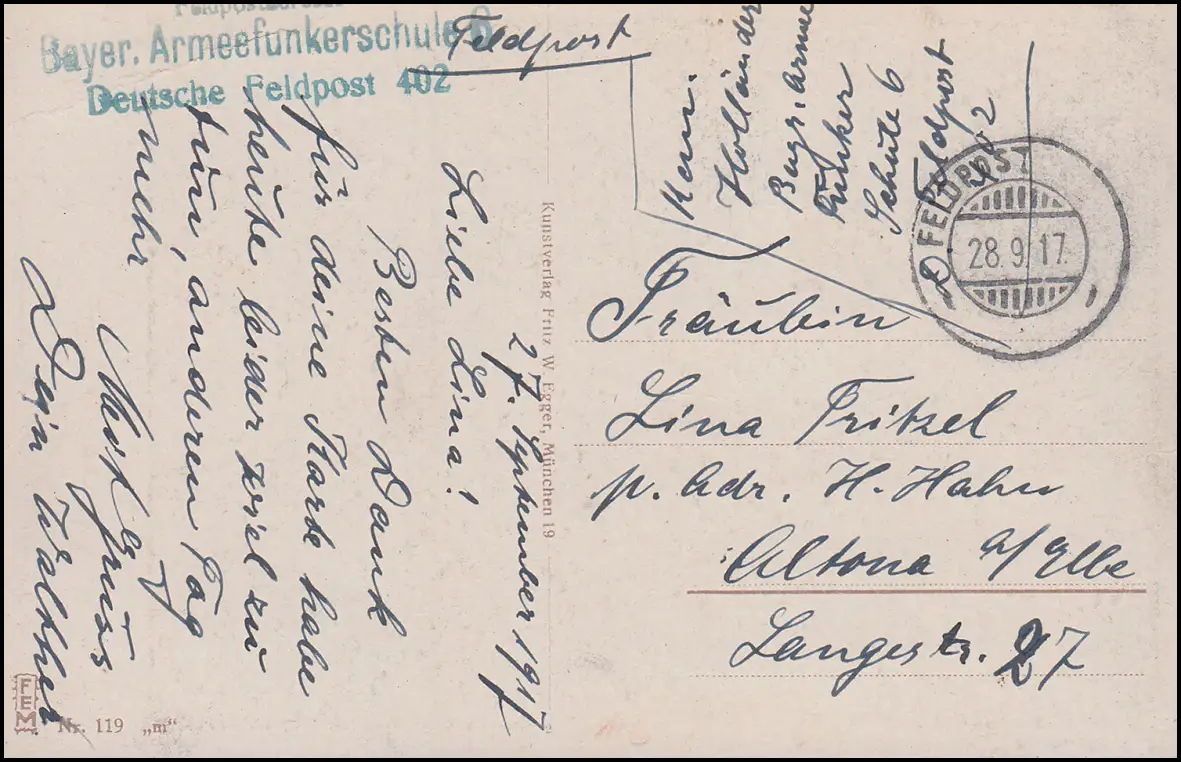 Feldpostadresse
Bayer. Armeefunkerschule 6
Deutsche Feldpost 402
Feldpost
Hollände
Bayr. Arme
Funker
Schule 6
Feldpost
402
FELDPOST
28.9.17.
27. September 1917
Liebe Lina!
Besten Dank
für deine Karte habe
heute leider zviel zu
tun, anderen Tag
mehr
Mit Gruss
Dein Walther
Fräulein
Lina Fritzel
p. Adr. H. Hahn
Altona a/Elbe
Langestr. 27
Kunstverlag Fritz W. Egger, München 19
FEM
Nr. 119 „m“